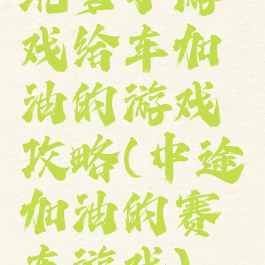 戏给车加
油的游戏
攻略(中途
加油的赛
车游戏)